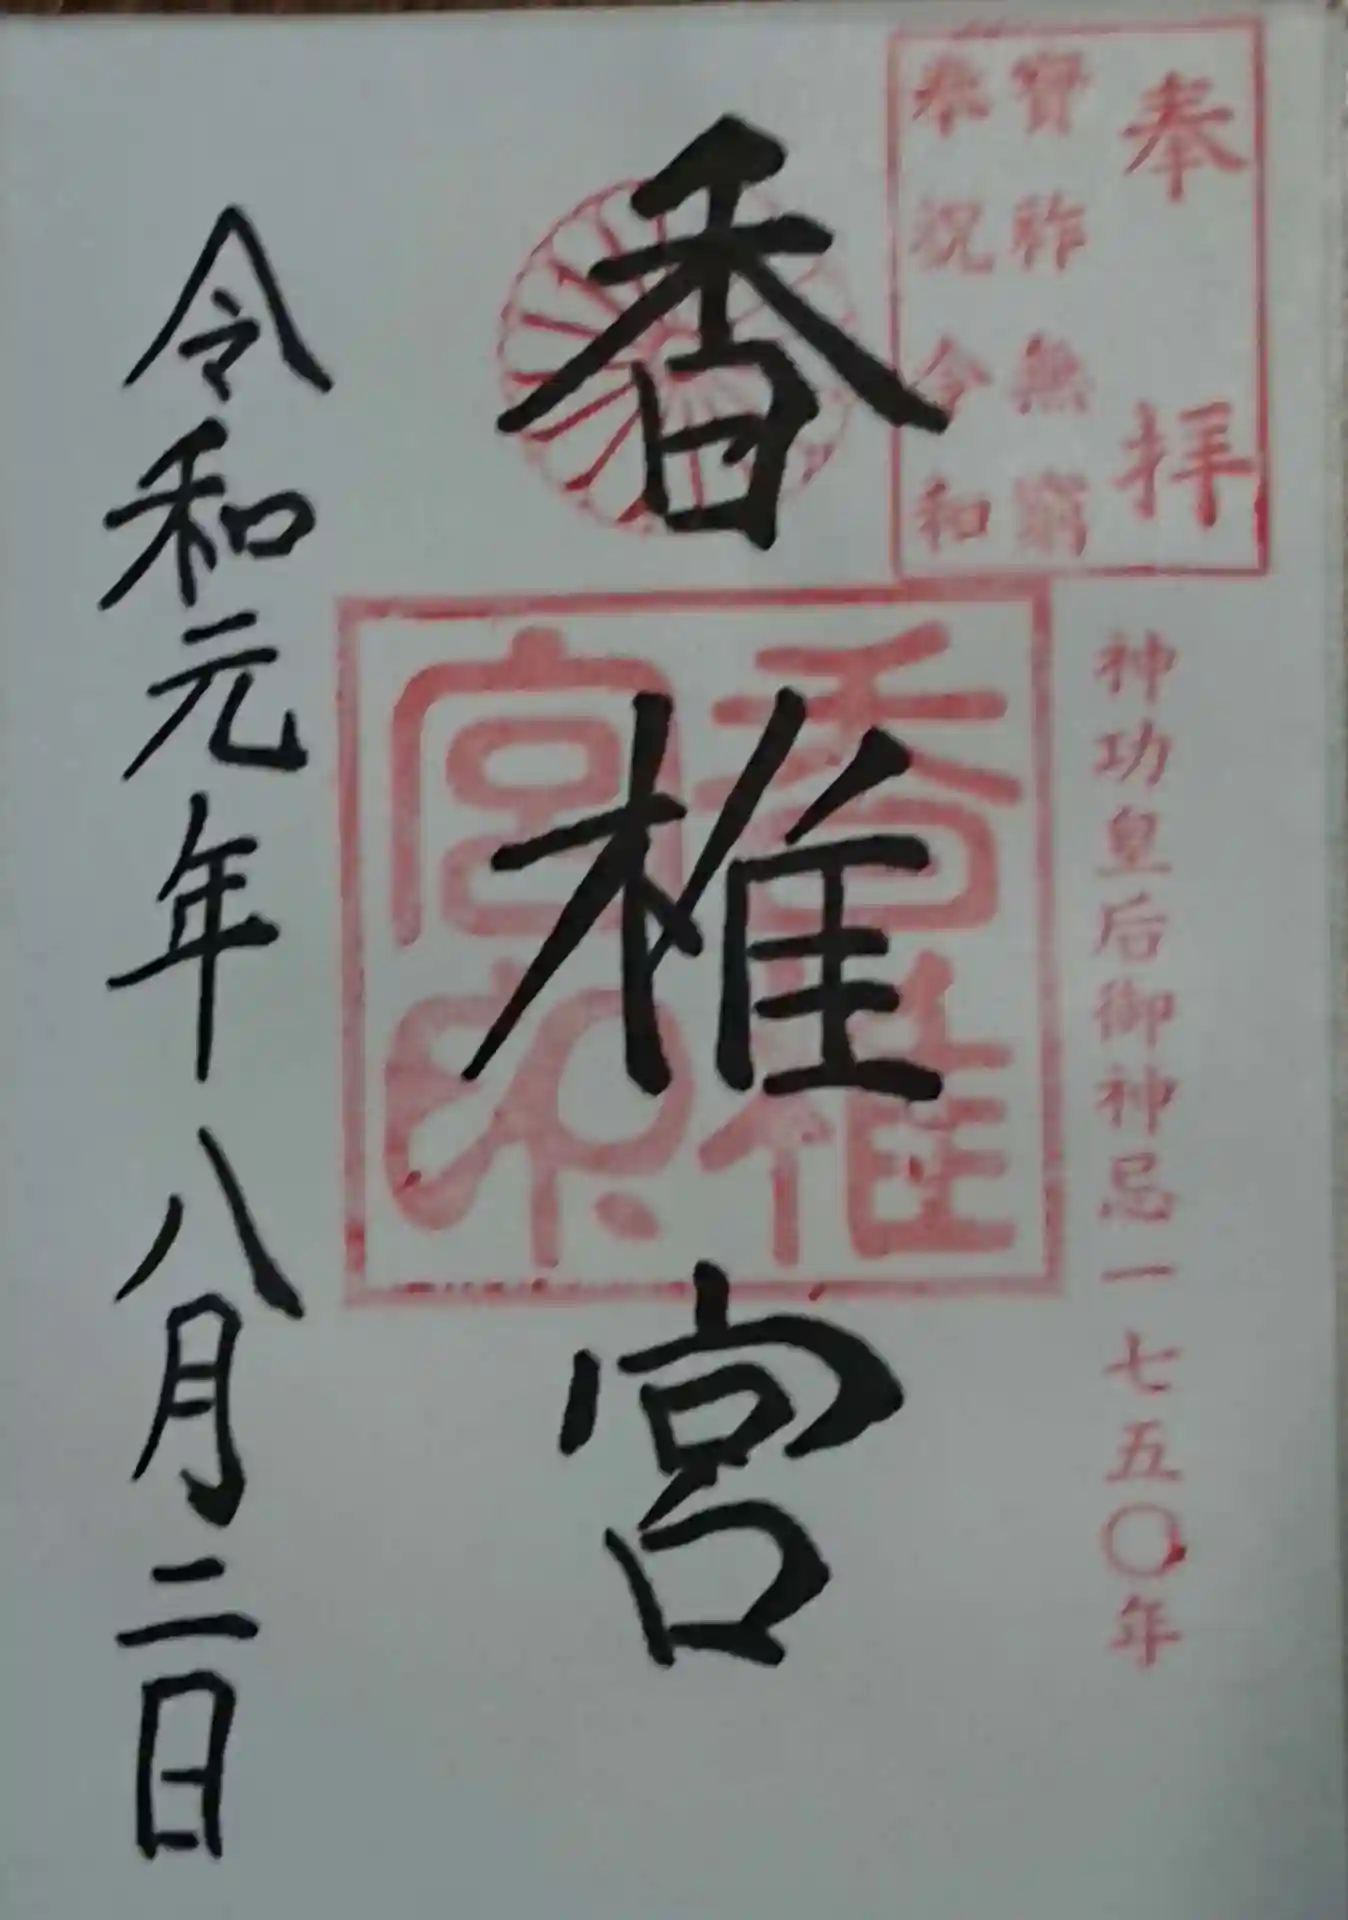 奉拝
寶祚無窮
恭祝令和
神功皇后御神忌一七五〇年
香椎宮
香椎
宮印
令和元年八月二日